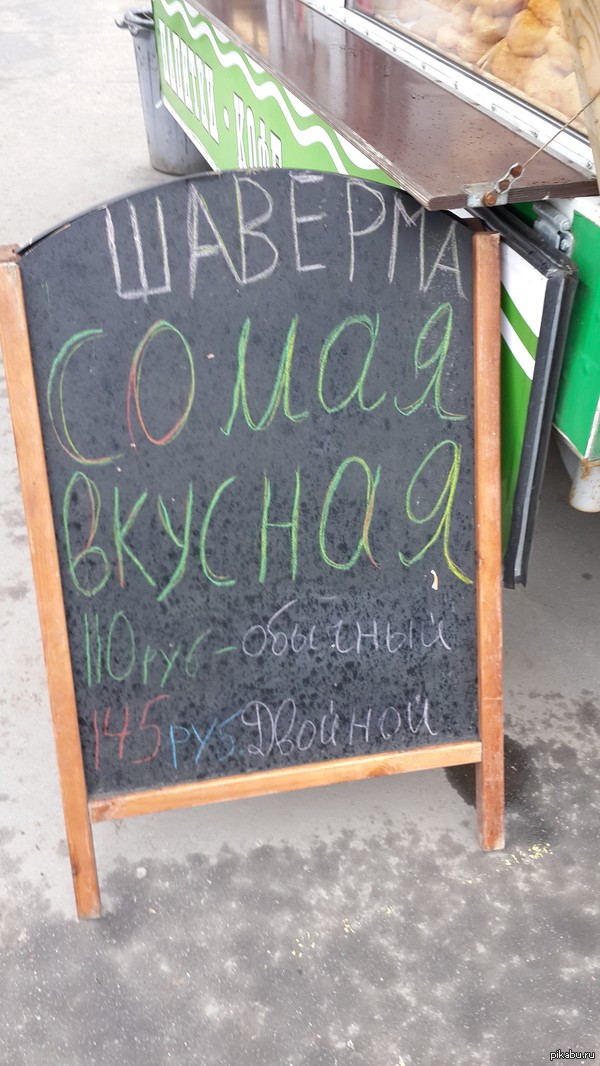 НАПИТКИ · КОФЕ
ШАВЕРМА
СОМАЯ
ВКУСНАЯ
110 руб - обычный
145 руб. Двойной
pikabu.ru